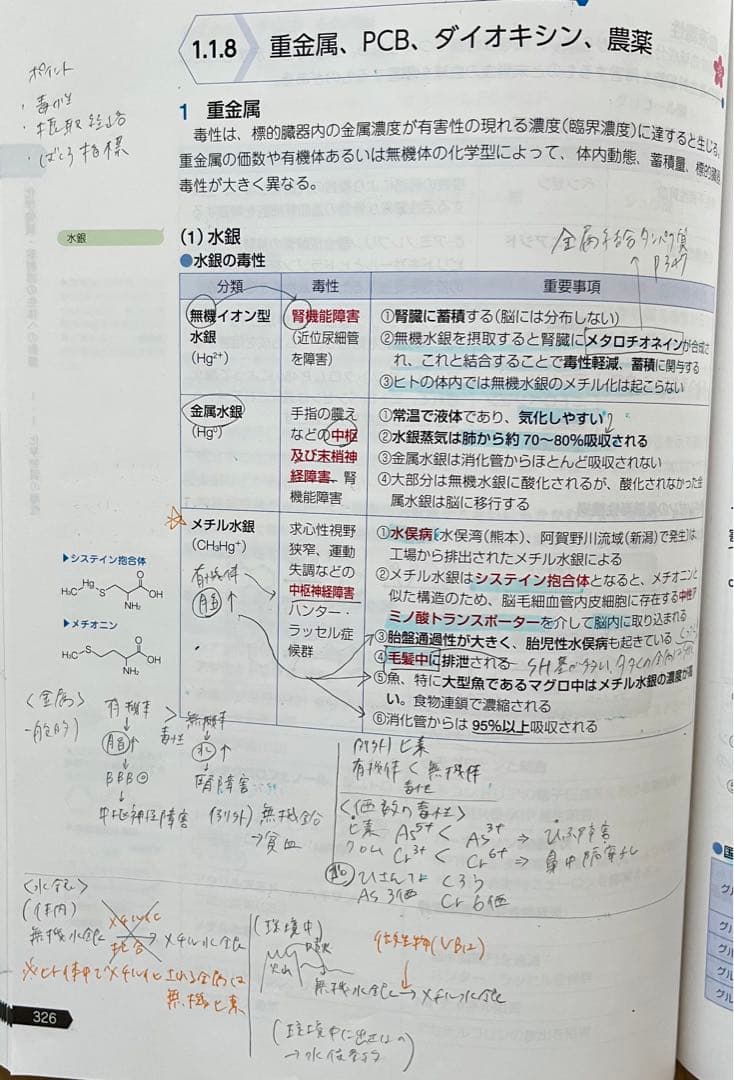 1.1.8 重金属、PCB、ダイオキシン、農薬
ポイント
・毒性
・摂取経路
・ばくろ指標
1 重金属
毒性は、標的臓器内の金属濃度が有害性の現れる濃度(臨界濃度)に達すると生じる。
重金属の価数や有機体あるいは無機体の化学型によって、体内動態、蓄積量、標的臓器
毒性が大きく異なる。
水銀
(1)水銀
金属結合タンパク質
P347
●水銀の毒性
分類 毒性 重要事項
無機イオン型
水銀
(Hg²⁺)
腎機能障害
(近位尿細管
を障害)
①腎臓に蓄積する(脳には分布しない)
②無機水銀を摂取すると腎臓にメタロチオネインが合成さ
れ、これと結合することで毒性軽減、蓄積に関与する
③ヒトの体内では無機水銀のメチル化は起こらない
金属水銀
(Hg⁰)
手指の震え
などの中枢
及び末梢神
経障害、腎
機能障害
①常温で液体であり、気化しやすい
②水銀蒸気は肺から約70〜80%吸収される
③金属水銀は消化管からほとんど吸収されない
④大部分は無機水銀に酸化されるが、酸化されなかった金
属水銀は脳に移行する
メチル水銀
(CH₃Hg⁺)
有機体
脂↑
求心性視野
狭窄、運動
失調などの
中枢神経障害
ハンター・
ラッセル症
候群
①水俣病(水俣湾(熊本)、阿賀野川流域(新潟)で発生)は、
工場から排出されたメチル水銀による
②メチル水銀はシステイン抱合体となると、メチオニンと
似た構造のため、脳毛細血管内皮細胞に存在する中性ア
ミノ酸トランスポーターを介して脳内に取り込まれる
③胎盤通過性が大きく、胎児性水俣病も起きている
④毛髪中に排泄される
⑤魚、特に大型魚であるマグロ中はメチル水銀の濃度が高
い。食物連鎖で濃縮される
⑥消化管からは95%以上吸収される
▶システイン抱合体
H₃C Hg S O OH NH₂
▶メチオニン
H₃C S O OH NH₂
〈金属〉
一般的)
有機体 > 無機体
毒性
脂↑ 水↑
BBB⊕ 腎障害
中枢神経障害 (例外) 無機鉛
→貧血
例外)ヒ素
有機体 < 無機体
毒性
〈価数の毒性〉
ヒ素 As⁵⁺ < As³⁺ ⇒ ひふ障害
クロム Cr³⁺ < Cr⁶⁺ ⇒ 鼻中隔穿孔
As 3価 Cr 6価
〈水銀〉
(体内)
無機水銀 → メチル水銀
メチル化
※ヒト体中でメチル化される金属は
無機ヒ素
(環境中)
火山
無機水銀 → メチル水銀
微生物(VB12)
326